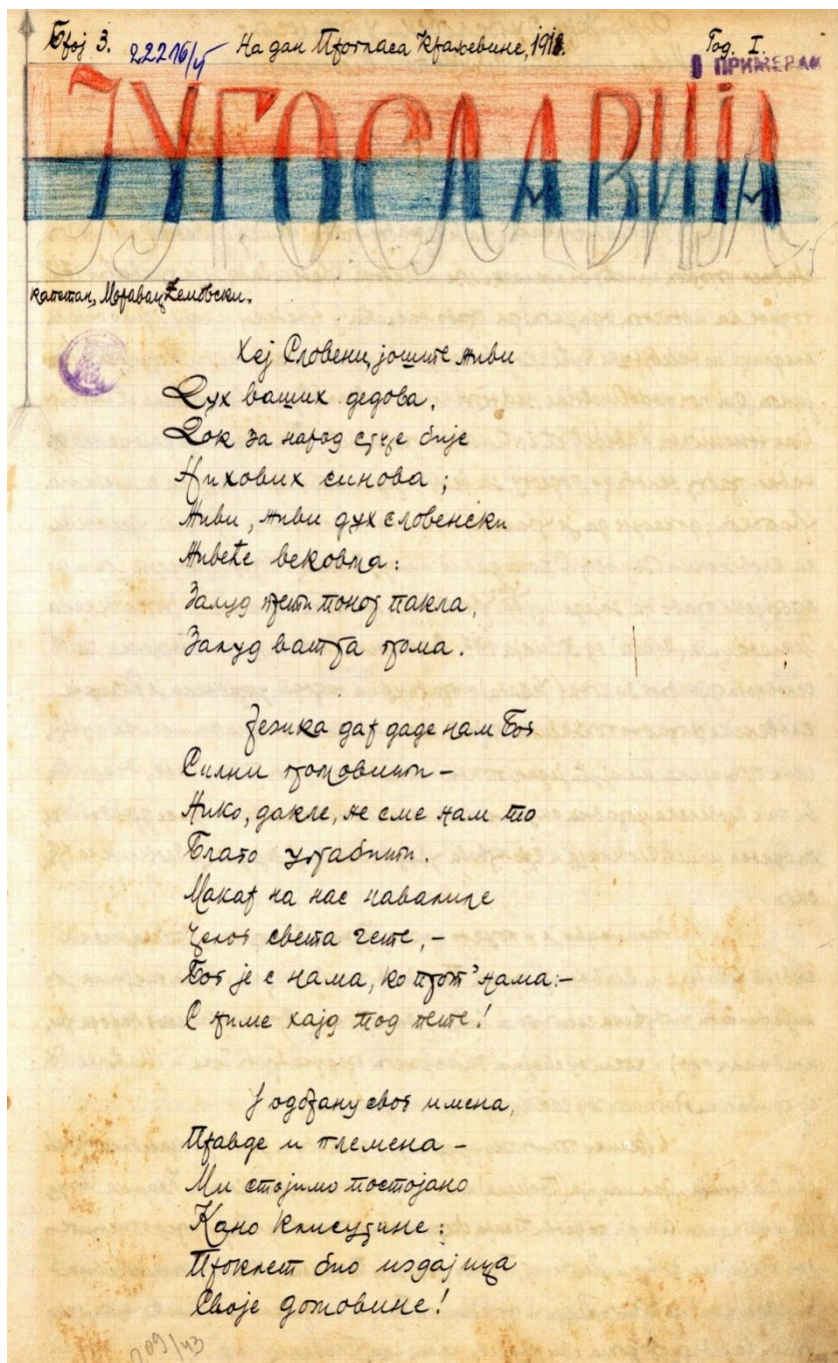 Број 3. 22216/4 На дан Прогласа Краљевине, 1918. Год. I.
I ПРИМЕРАК
ЈУГОСЛАВИЈА
капетан, Моравац
Хеј Словени, јоште живи
Дух ваших дедова,
Док за народ срце бије
Њихових синова;
Живи, живи дух словенски
Живеће вековма:
Залуд прети понор пакла,
Залуд ватра грома.
Језика дар даде нам Бог
Силни громовити –
Нико, дакле, не сме нам то
Благо уграбити.
Макар на нас навалиле
Целог света чете, –
Бог је с нама, ко прот' нама: –
С њиме хајд под пете!
У одбрану свог имена,
Правде и племена –
Ми стојимо постојано
Кано клисурине:
Проклет био издајица
Своје домовине!
109/43